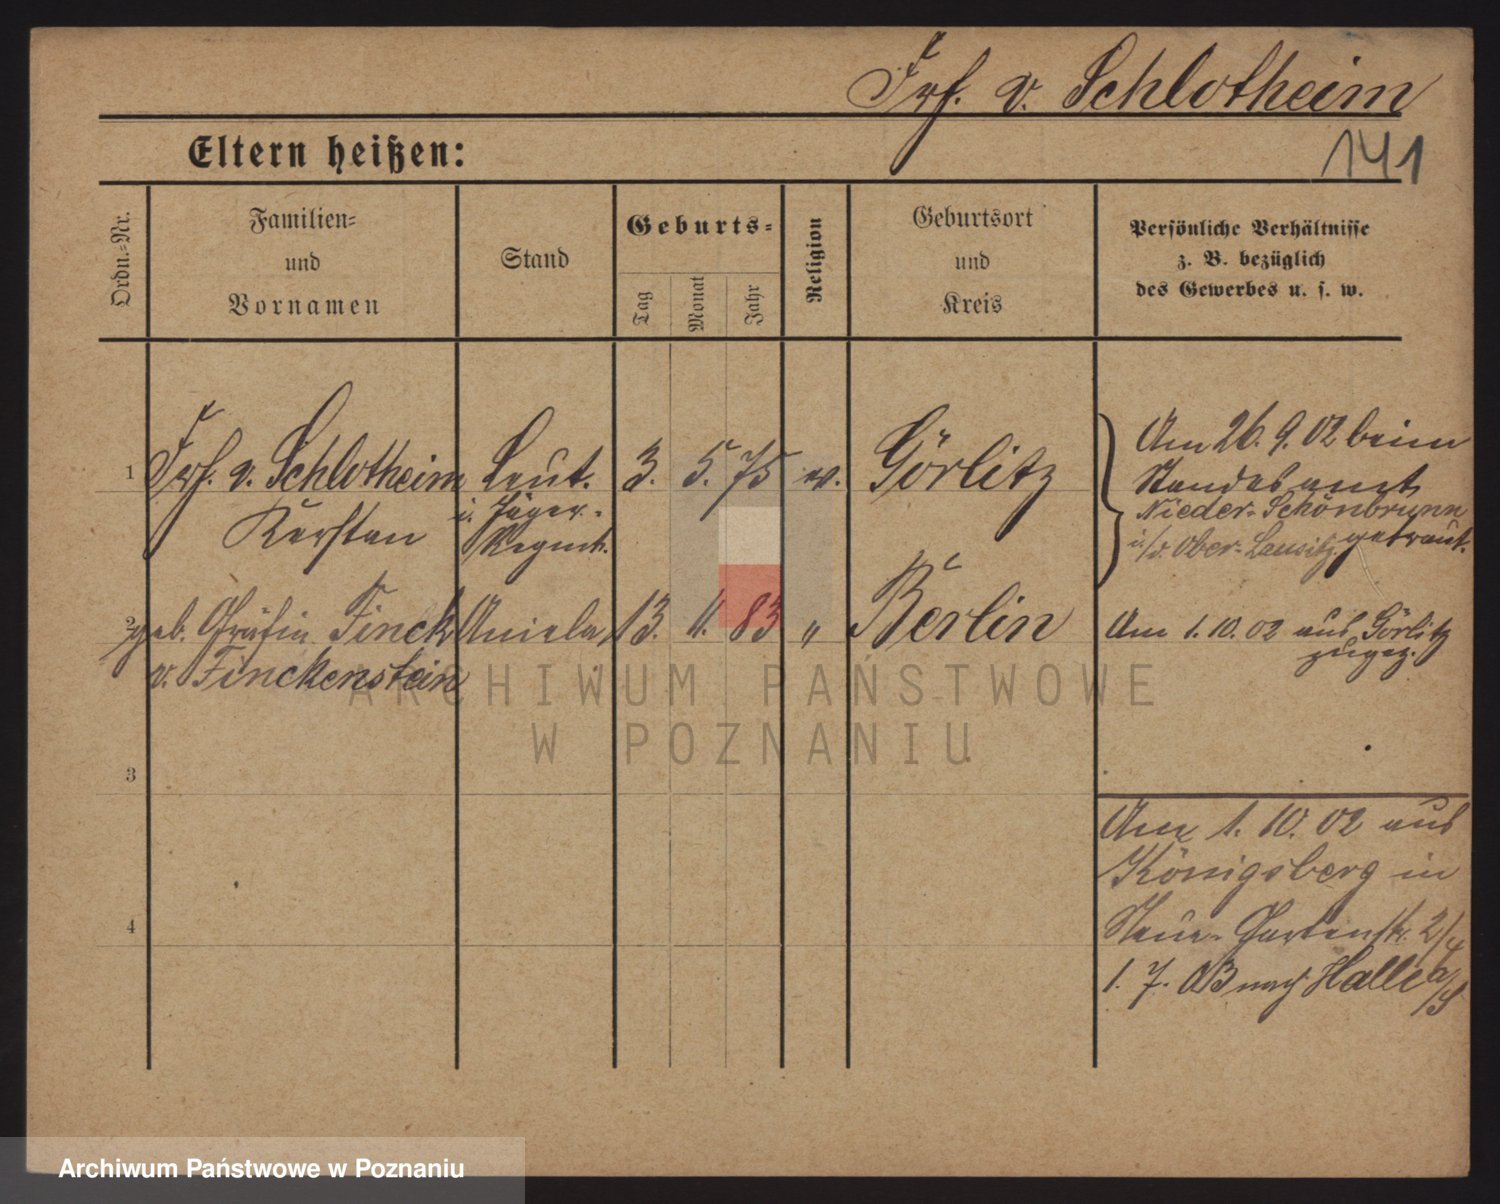 Frh. v. Schlotheim
Eltern heißen:
141
Ordn.-Nr.
Familien-
und
Vornamen
Stand
Geburts-
Tag
Monat
Jahr
Religion
Geburtsort
und
Kreis
Persönliche Verhältnisse
z. B. bezüglich
des Gewerbes u. s. w.
1 Frh. v. Schlotheim Leut. 3. 5. 75 ev. Görlitz
Karsten
i. Jäger-
Regmt.
Am 26. 9. 02 beim
Standesamt
Nieder-Schönbrunn
i./d. Ober-Lausitz getraut.
2 geb. Gräfin Finck Aniela 13. 4. 83 " Berlin
v. Finckenstein
Am 1. 10. 02 aus Görlitz
zugez.
3
4
Am 1. 10. 02 aus
Königsberg in
Neue-Gartenstr. 2/4
1. 7. 03 nach Halle a/S
ARCHIWUM PAŃSTWOWE
W POZNANIU
Archiwum Państwowe w Poznaniu